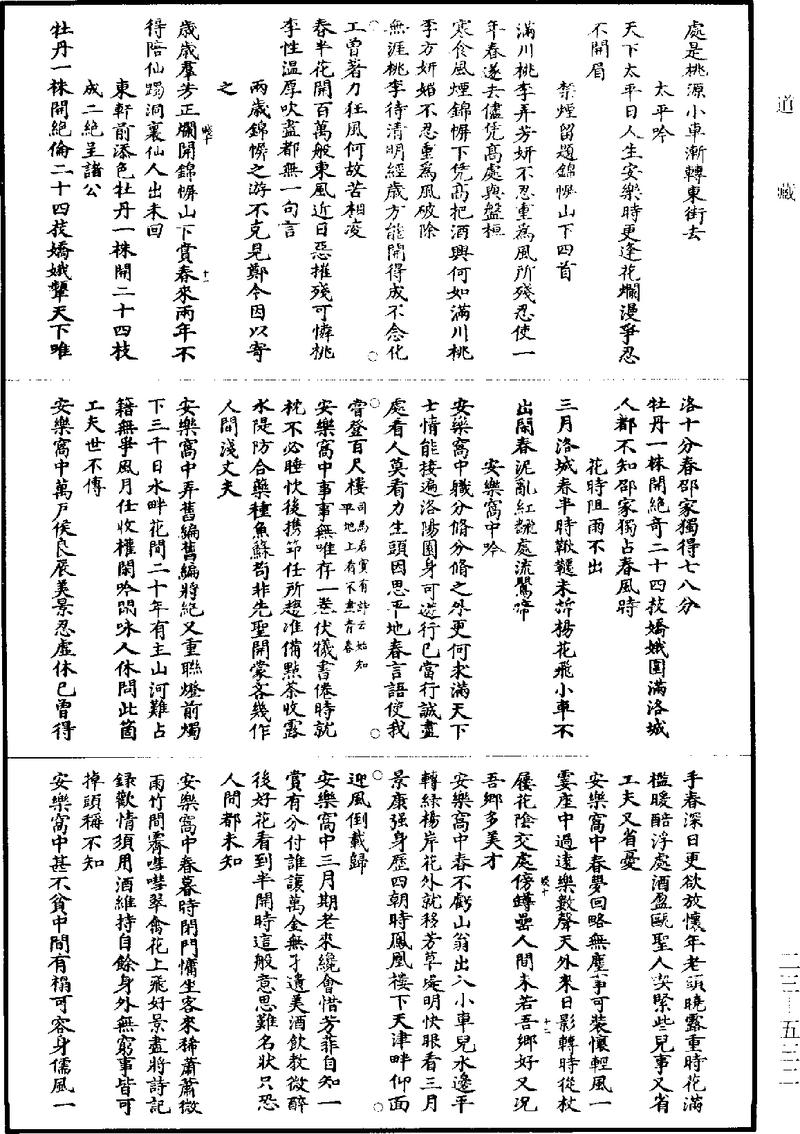 道藏
處是桃源小車漸轉東街去
太平吟
天下太平日人生安樂時更逢花爛漫爭忍
不開眉
禁煙留題錦幈山下四首
滿川桃李弄芳妍不忍重為風所殘忍使一
年春遂去儘凭高處與盤桓
寒食風煙錦幈下凭高把酒興何如滿川桃
李方妍媚不忍重為風破除
無涯桃李待清明經歲方能開得成不念化
工曾著力狂風何故苦相凌
春半花開百萬般東風近日惡摧殘可憐桃
李性溫厚吹盡都無一句言
兩歲錦幈之游不克見鄭令因以寄
之
歲歲羣芳正爛開錦幈山下賞春來兩年不
得陪仙躅洞裏仙人出未回
東軒前添色牡丹一株開二十四枝
成二絕呈諸公
牡丹一株開絕倫二十四枝嬌娥顰天下唯
洛十分春邵家獨得七八分
牡丹一株開絕奇二十四枝嬌娥圍滿洛城
人都不知邵家獨占春風時
花時阻雨不出
三月洛城春半時鞦韆未拆楊花飛小車不
出閑春泥亂紅翻處流鶯啼
安樂窩中吟
安樂窩中職分脩分脩之外更何求滿天下
士情能接遍洛陽園身可遊行已當行誠盡
處看人莫看力生頭因思平地春言語使我
嘗登百尺樓司馬君實有詩云始知平地上有不盡青春
安樂窩中事事無唯存一卷伏犧書倦時就
枕不必睡忺後携筇任所趨准備點茶收露
水隄防合藥種魚蘇苟非先聖開蒙吝幾作
人間淺丈夫
安樂窩中弄舊編舊編將絕又重聯燈前燭
下三千日水畔花間二十年有主山河難占
籍無爭風月任收權閑吟閑咏人休問此箇
工夫世不傳
安樂窩中萬戶侯良辰美景忍虛休已曾得
手春深日更欲放懷年老頭曉露重時花滿
檻暖醅浮處酒盈甌聖人喫緊些兒事又省
工夫又省憂
安樂窩中春夢回略無塵事可裝懷輕風一
霎座中過遠樂數聲天外來日影轉時從杖
屨花陰交處傍罇罍人間未若吾鄉好又況
吾鄉多美才
安樂窩中春不虧山翁出入小車兒水邊平
轉綠楊岸花外就移芳草處明快眼看三月
景康强身歷四朝時鳳凰樓下天津畔仰面
迎風倒載歸
安樂窩中三月期老來纔會惜芳菲自知一
賞有分付誰讓萬金無孑遺美酒飲教微醉
後好花看到半開時這般意思難名狀只恐
人間都未知
安樂窩中春暮時閉門慵坐客來稀蕭蕭微
雨竹間霽嘒嘒翠禽花上飛好景盡將詩記
錄歡情須用酒維持自餘身外無窮事皆可
掉頭稱不知
安樂窩中甚不貧中間有榻可容身儒風一
二三—五三二